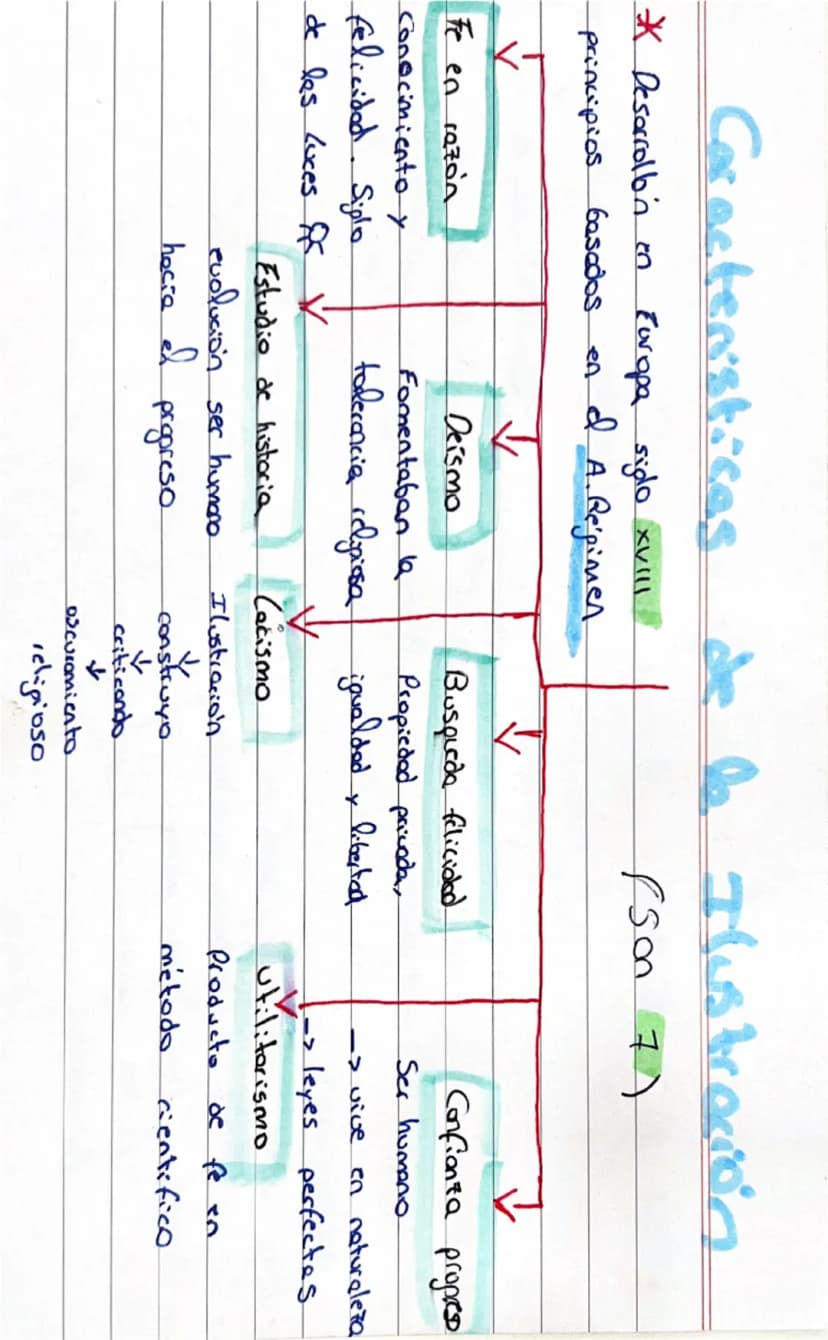 Características de la Ilustración
* Desarrollón en Europa siglo XVIII (Son 7)
principios basados en el A.Régimen
Fe en razón
Conocimiento y
felicidad. Siglo
de las luces
Deísmo
Fomentaban la
tolerancia religiosa
Busqueda felicidad
Propiedad privada,
igualdad y libertad
Confianza progreso
Ser humano
-> vive en naturaleza
-> leyes perfectas
Estudio de historia
evolución ser humano
hacia el progreso
Laicismo
Ilustración
construyo
criticando
oscuramiento
religioso
Utilitarismo
Producto de fe en
método científico